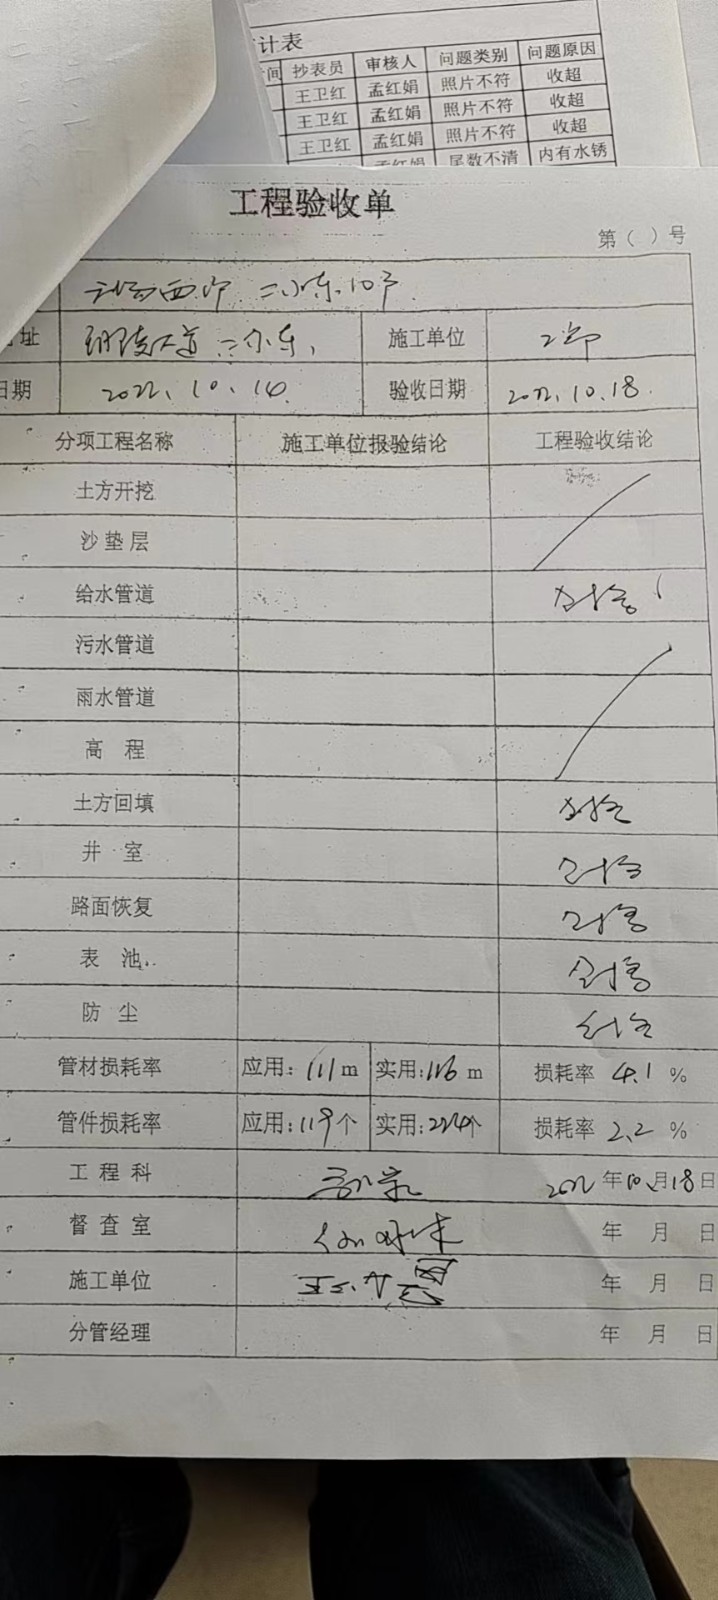 计表
间 抄表员 审核人 问题类别 问题原因
王卫红 孟红娟 照片不符 收超
王卫红 孟红娟 照片不符 收超
王卫红 孟红娟 照片不符 收超
孟红娟 尾数不清 内有水锈
工程验收单
第（ ）号
二小东 10户
址 二小东 施工单位
日期 2022.10.14. 验收日期 2022.10.18.
分项工程名称 施工单位报验结论 工程验收结论
土方开挖
沙垫层
给水管道 合格
污水管道
雨水管道
高 程
土方回填 合格
井 室 合格
路面恢复 合格
表 池 合格
防 尘 合格
管材损耗率 应用: 111 m 实用: 116 m 损耗率 4.1 %
管件损耗率 应用: 119个 实用: 个 损耗率 2.2 %
工程科 2022年10月18日
督查室 年 月 日
施工单位 年 月 日
分管经理 年 月 日